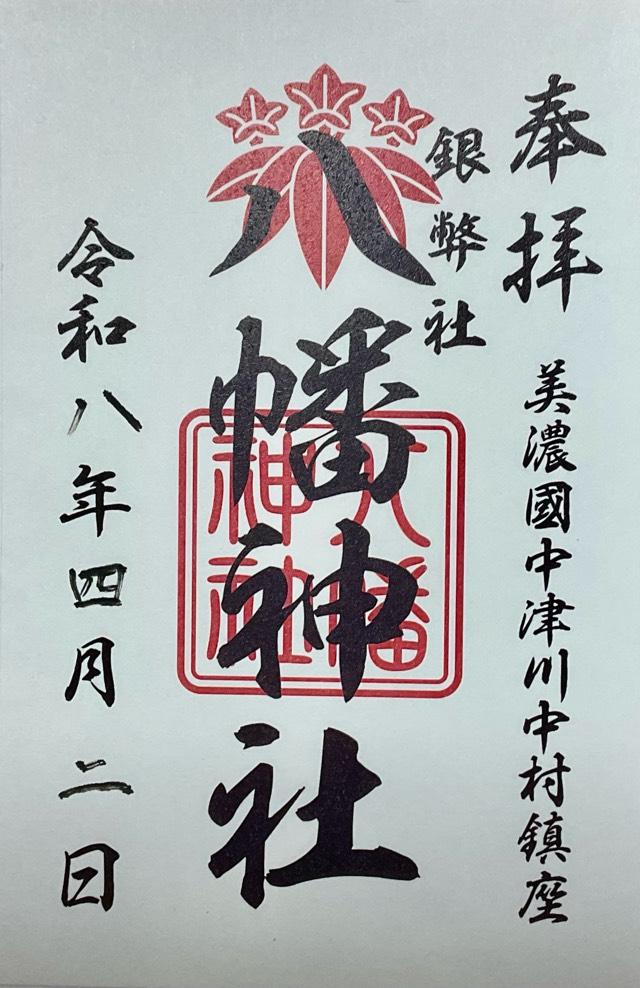 奉拝
美濃國中津川中村鎮座
銀幣社
八幡神社
八幡神社
令和八年四月二日